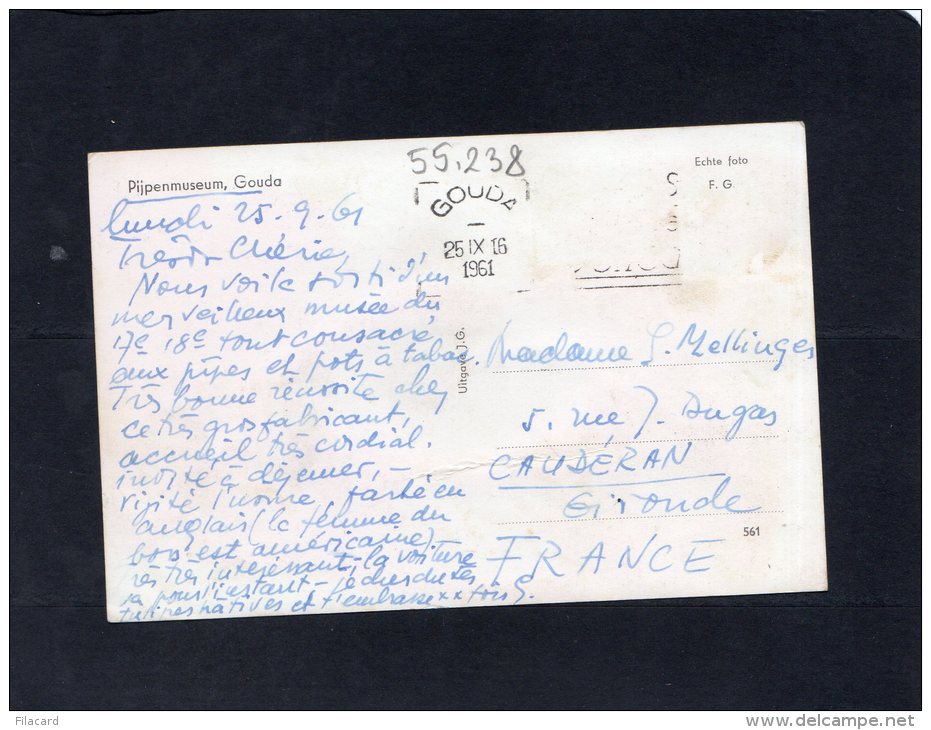 55.238
Pijpenmuseum, Gouda
Echte foto
F. G.
GOUDA
25 IX 16
1961
lundi 25.9.61
Chérie,
Nous voilà sorti d'un
merveilleux musée du
17e 18e tout consacré
aux pipes et pots à tabac.
Très bonne réussite chez
ce très gros fabricant,
accueil très cordial.
invité à déjeuner, -
visité l'usine, parlé en
anglais (la femme du
boss est américaine)
très intéressant, la voiture
va pour l'instant - je cherche tes
tulipes natives et t'embrasse xx fois J.
Uitgave J.G.
Madame J. Mellinger
5. rue J. Dugas
CAUDÉRAN
Gironde
FRANCE
561
Filacard
www.delcampe.net